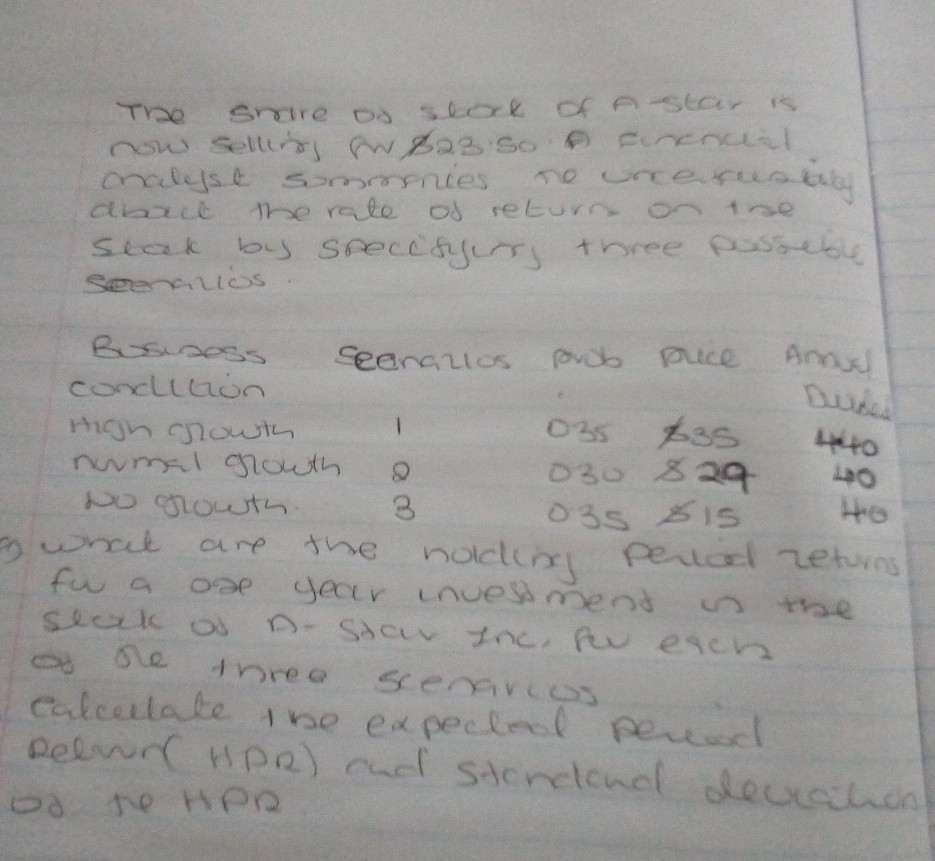 The share of stock of A-star is
now selling for $23.50. A financial
analyst summaries the uncertainty
about the rate of return on the
stock by specifying three possible
scenarios.
Business scenarios prob price Annual
condition
High growth 1 035 $35 440
normal growth 2 030 $29 40
No growth. 3 035 $15 40
what are the holding period returns
for a one year investment in the
stock of A-star Inc. for each
of the three scenarios
calculate the expected period
Return( HPR) and standard deviation
of the HPR